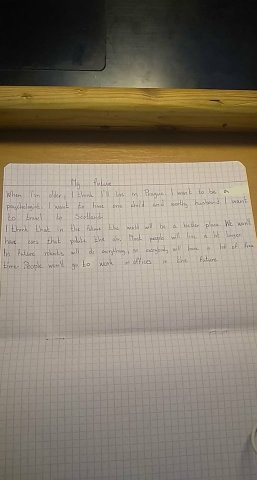 My future
When I'm older, I think I'll live in Prague. I want to be a
psychologist. I want to have one child and worthy husband. I want
to travel to Scotland.
I think that in the future the world will be a better place. We won't
have cars that pollute the air. Most people will live a lot longer.
In future robots will do everything, so everybody will have a lot of free
time. People won't go to work in offices in the future.